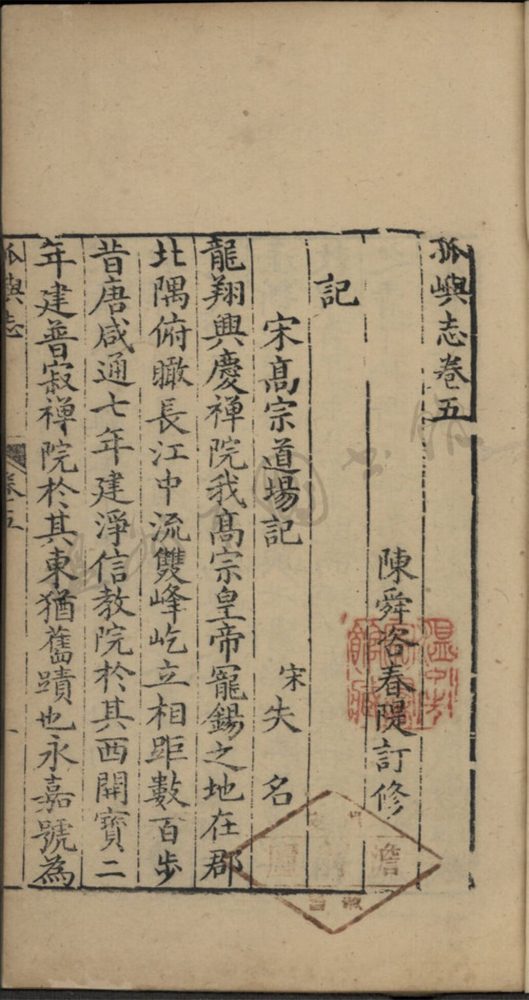 孤嶼志卷五
陳舜咨春隄訂修
記
宋髙宗道場記
宋失名
龍翔興慶禅院我髙宗皇帝寵錫之地在郡
北隅俯瞰長江中流雙峰屹立相距數百步
昔唐咸通七年建淨信教院於其西開寳二
年建普寂禅院於其東猶舊蹟也永嘉號為
孤嶼志
卷五
一